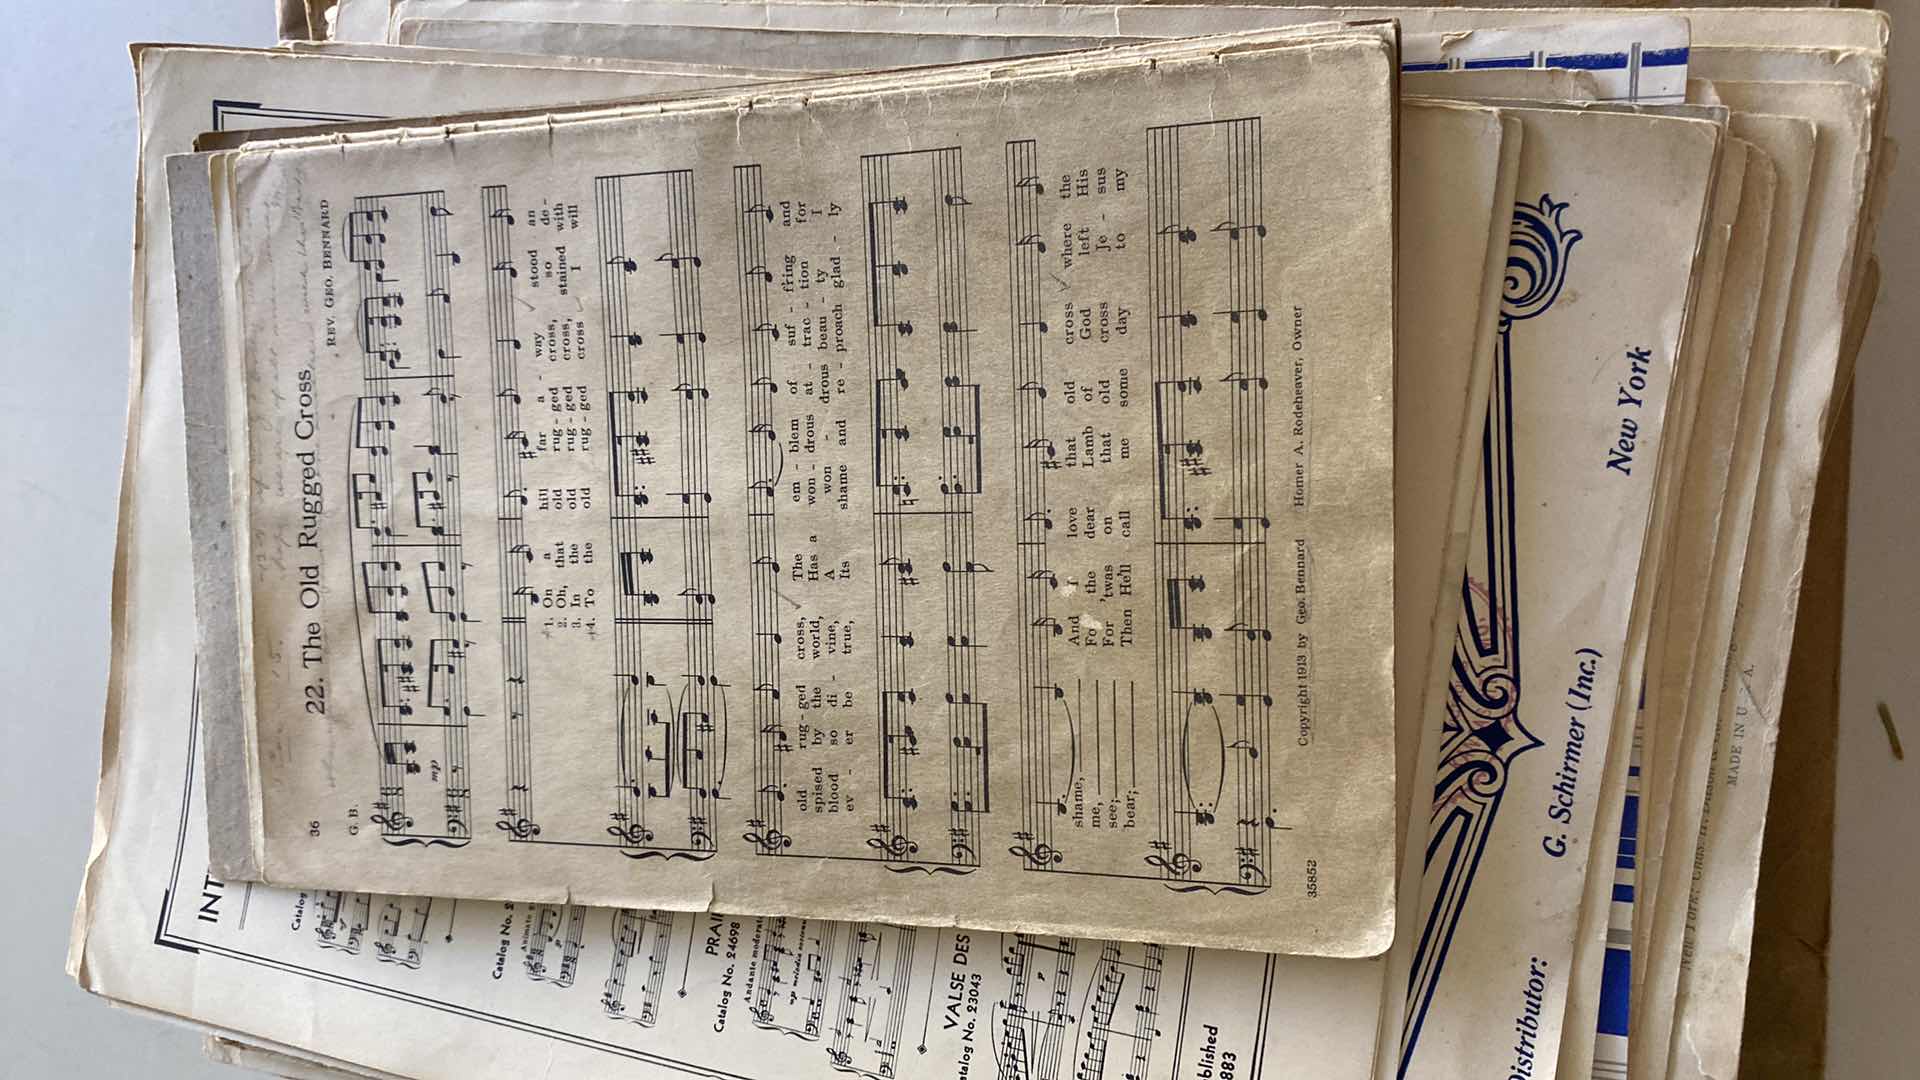 36
22. The Old Rugged Cross.
G. B.
REV. GEO. BENNARD
mp
1. On a hill far a - way stood an
2. Oh, that old rug - ged cross, so de -
3. In the old rug - ged cross, stained with
4. To the old rug - ged cross I will
old rug - ged cross, The em - blem of suf - f'ring and
spised by the world, Has a won - drous at - trac - tion for
blood so di - vine, A won - drous beau - ty I
ev - er be true, Its shame and re - proach glad - ly
shame, And I love that old cross where the
me, Fo the dear Lamb of God left His
see; For 'twas on that old cross Je - sus
bear; Then He'll call me some day to my
Copyright 1913 by Geo. Bennard Homer A. Rodeheaver, Owner
35852
INT
Catalog
Catalog No. 2
Animato
PRAI
Catalog No. 24698
Andante moderato
mp
VALSE DES
Catalog No. 23043
p
blished
883
Distributor:
G. Schirmer (Inc.)
New York
New York: Chas. H. Ditson
MADE IN U. S. A.